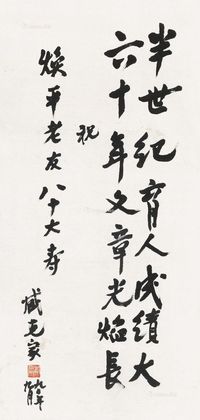 半世纪育人成绩大
六十年文章光焰长
祝
焕平老友八十大寿
臧克家